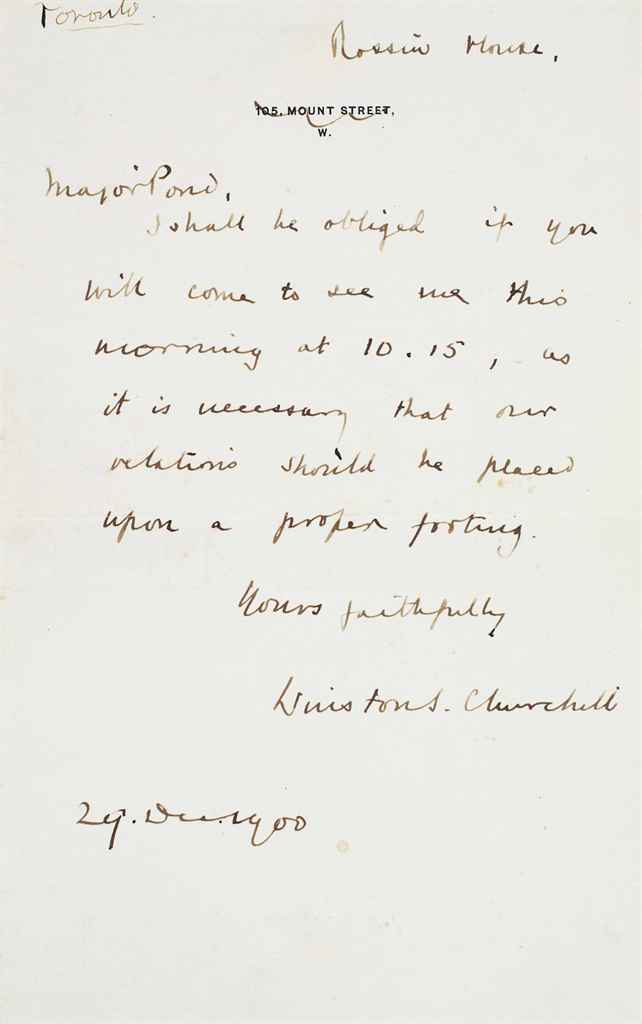 Toronto.
Rossin House,
105, MOUNT STREET,
W.
Major Pond,
I shall be obliged if you
will come to see me this
morning at 10.15, as
it is necessary that our
relations should be placed
upon a proper footing.
Yours faithfully
Winston S. Churchill
29. Dec. 1900